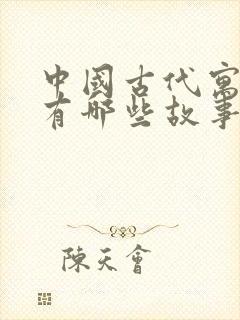 中國古代寓
有哪些故事
陳天會